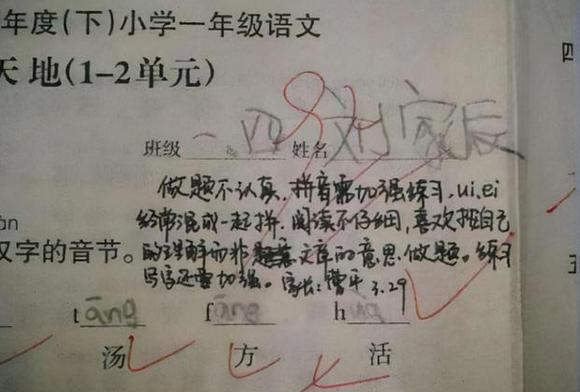 年度(下)小学一年级语文
天地(1-2单元)
四
班级 一 四 姓名 刘家辰
做题不认真,拼音需加强练习,ui、ei
经常混成一起拼,阅读不仔细,喜欢按自己
的理解而非文章的意思做题。练习
写字还需加强。家长: 3.29
àn
汉字的音节。
tāng fāng h
汤 方 活